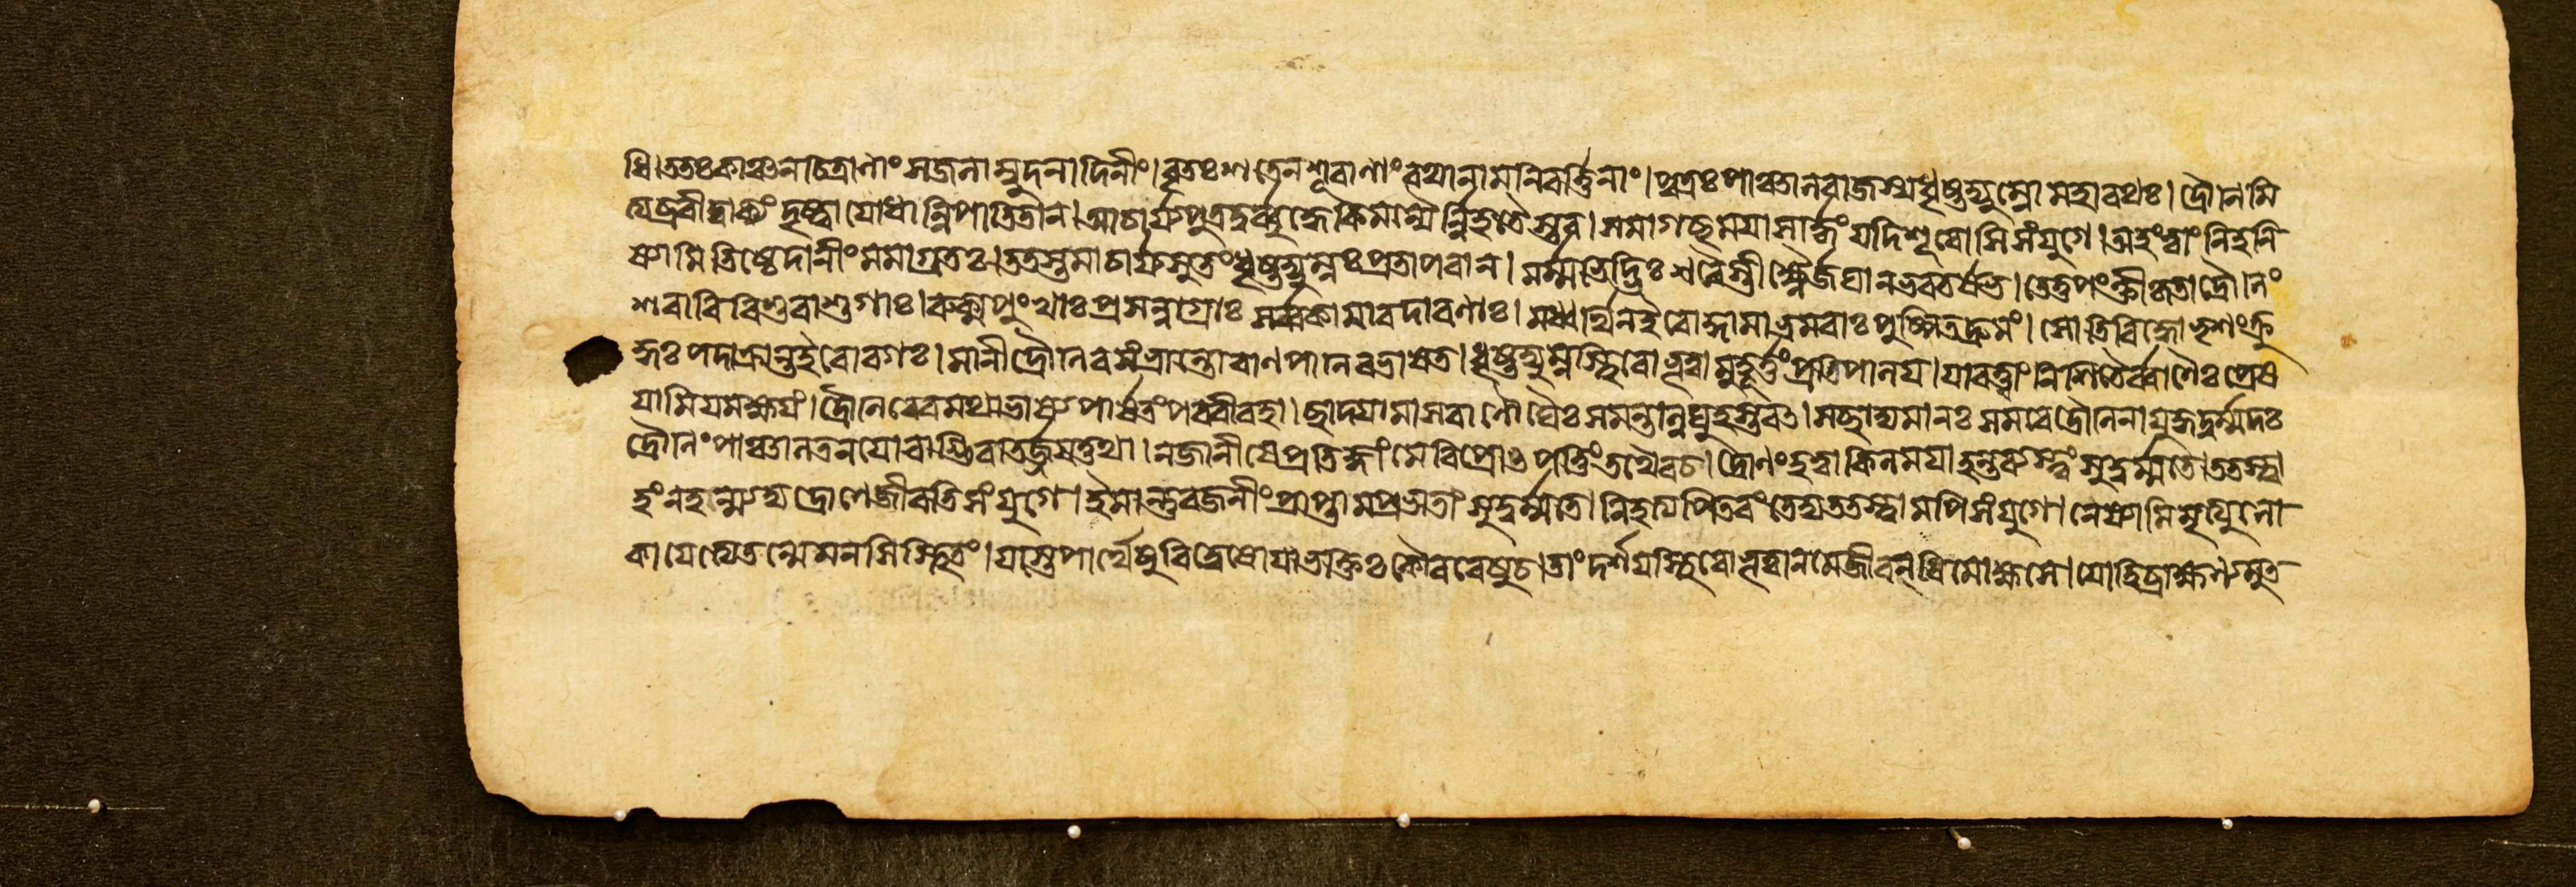 ধি।ততঃকাঞ্চনচিত্রাণাং সজলাম্বুদনাদিনীং।বৃতঃশতেনশূরাণাং রথানামনিবর্ত্তিনাং।পুত্রঃপাঞ্চালরাজস্যধৃষ্টদ্যুম্নো মহারথঃ। দ্রৌনিমি
ত্যব্রবীদ্বাক্যং দৃষ্ট্বা যোধান্নিপাতিতান। আচার্য্যপুত্রদুর্ব্বুদ্ধেকিমন্যৈর্ন্নিহতৈস্তব। সমাগচ্ছময়াসার্দ্ধং যদিশূরোসি সংযুগে।অহংত্বাং নিহনি
ষ্যামি তিষ্ঠেদানীং মমাগ্রতঃ।ততস্তমাচার্য্যসুতংধৃষ্টদ্যুম্নঃপ্রতাপবান। মর্ম্মভিদ্ভিঃ শরৈস্তীক্ষ্ণৈর্জঘানভরতর্ষভ।তেতুপংক্তীকৃতাদ্রৌনিং
শরাবিবিশুরাশুগাঃ।রুক্মপুংখাঃপ্রসন্নাগ্রাঃ সর্ব্বকায়াবদারণাঃ।মধ্বর্থিনইবোদ্দামাভ্রমরাঃপুষ্পিতদ্রুমং। সোতিবিদ্ধোভৃশংক্রু
দ্ধঃপদাক্রান্তইবোরগঃ।মানীদ্রৌনিরসংভ্রান্তোবাণপানিরভাষত।ধৃষ্টদ্যুম্নস্থিরোভূত্বামুহূর্ত্তংপ্রতিপালয়।যাবত্ত্বাং নিশিতৈর্ব্বাণৈঃপ্রেষ
যামিযমক্ষয়ং।দ্রৌনিরেবমথাভাষ্যপার্ষতংপরবীরহা।ছাদয়ামাসবাণৌঘৈঃসমন্তাল্লঘুহস্তবত।সছাদ্যমানঃসমরেদ্রৌনিনাযুদ্ধদুর্ম্মদঃ
দ্রৌনিং পাঞ্চালতনয়োবাগ্ভিরাতর্জ্জয়ত্তথা। নজানীষেপ্রতিজ্ঞাং মেবিপ্রোৎপত্তিংতথৈবচ। দ্রোণংহত্বাকিলময়াহন্তব্যস্ত্বং সুদুর্ম্মতে।ততস্ত্বা
হং নহন্ম্যদ্যদ্রোণেজীবতিসংযুগে।ইমান্তুরজনীংপ্রাপ্তামপ্রভাতাং সুদুর্ম্মতে। নিহত্যপিতরংতেদ্যততস্ত্বামপিসংযুগে। নেষ্যামিমৃত্যুলো
কায়েত্যেতন্মেমনসিস্থিতং।যস্তেপার্থেষুবিদ্বেষোযাভক্তিঃকৌরবেষুচ।তাং দর্শয়স্থিরোভূত্বানমেজীবন্বিমোক্ষসে।যোহিব্রাহ্মণ্যমুত